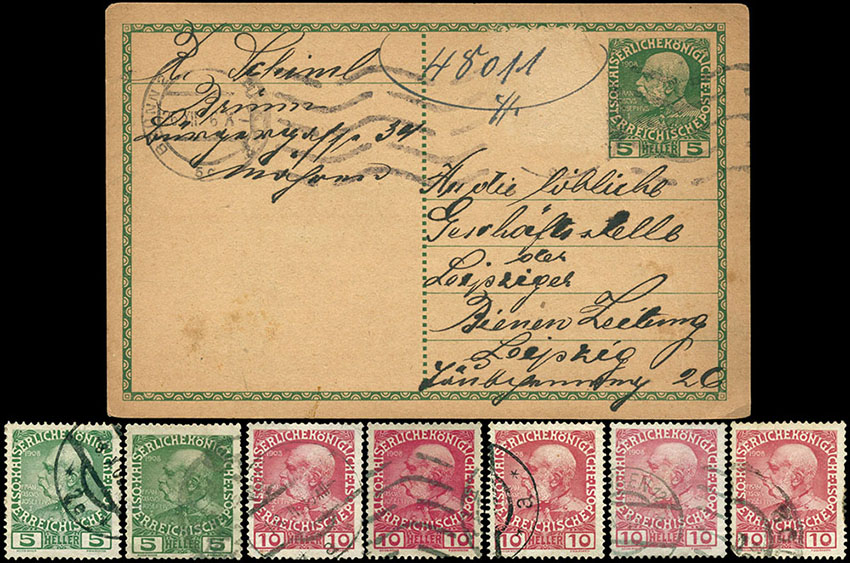 Schiml
Brünn
Bürgergasse 34
Mähren
48011
KAISERLICHE KÖNIGLICHE
ÖSTERREICHISCHE POST
1908
5 HELLER 5
An die löbliche
Geschäftsstelle
der
Leipziger
Bienen Zeitung
Leipzig
26
KAISERLICHE KÖNIGLICHE
1908
ÖSTERREICHISCHE POST
5 HELLER 5
KAISERLICHE KÖNIGLICHE
1908
ÖSTERREICHISCHE POST
5 HELLER 5
KAISERLICHE KÖNIGLICHE
1908
ÖSTERREICHISCHE POST
10 HELLER 10
KAISERLICHE KÖNIGLICHE
1908
ÖSTERREICHISCHE POST
10 HELLER 10
KAISERLICHE KÖNIGLICHE
1908
ÖSTERREICHISCHE POST
10 HELLER 10
KAISERLICHE KÖNIGLICHE
1908
ÖSTERREICHISCHE POST
10 HELLER 10
KAISERLICHE KÖNIGLICHE
1908
ÖSTERREICHISCHE POST
10 HELLER 10